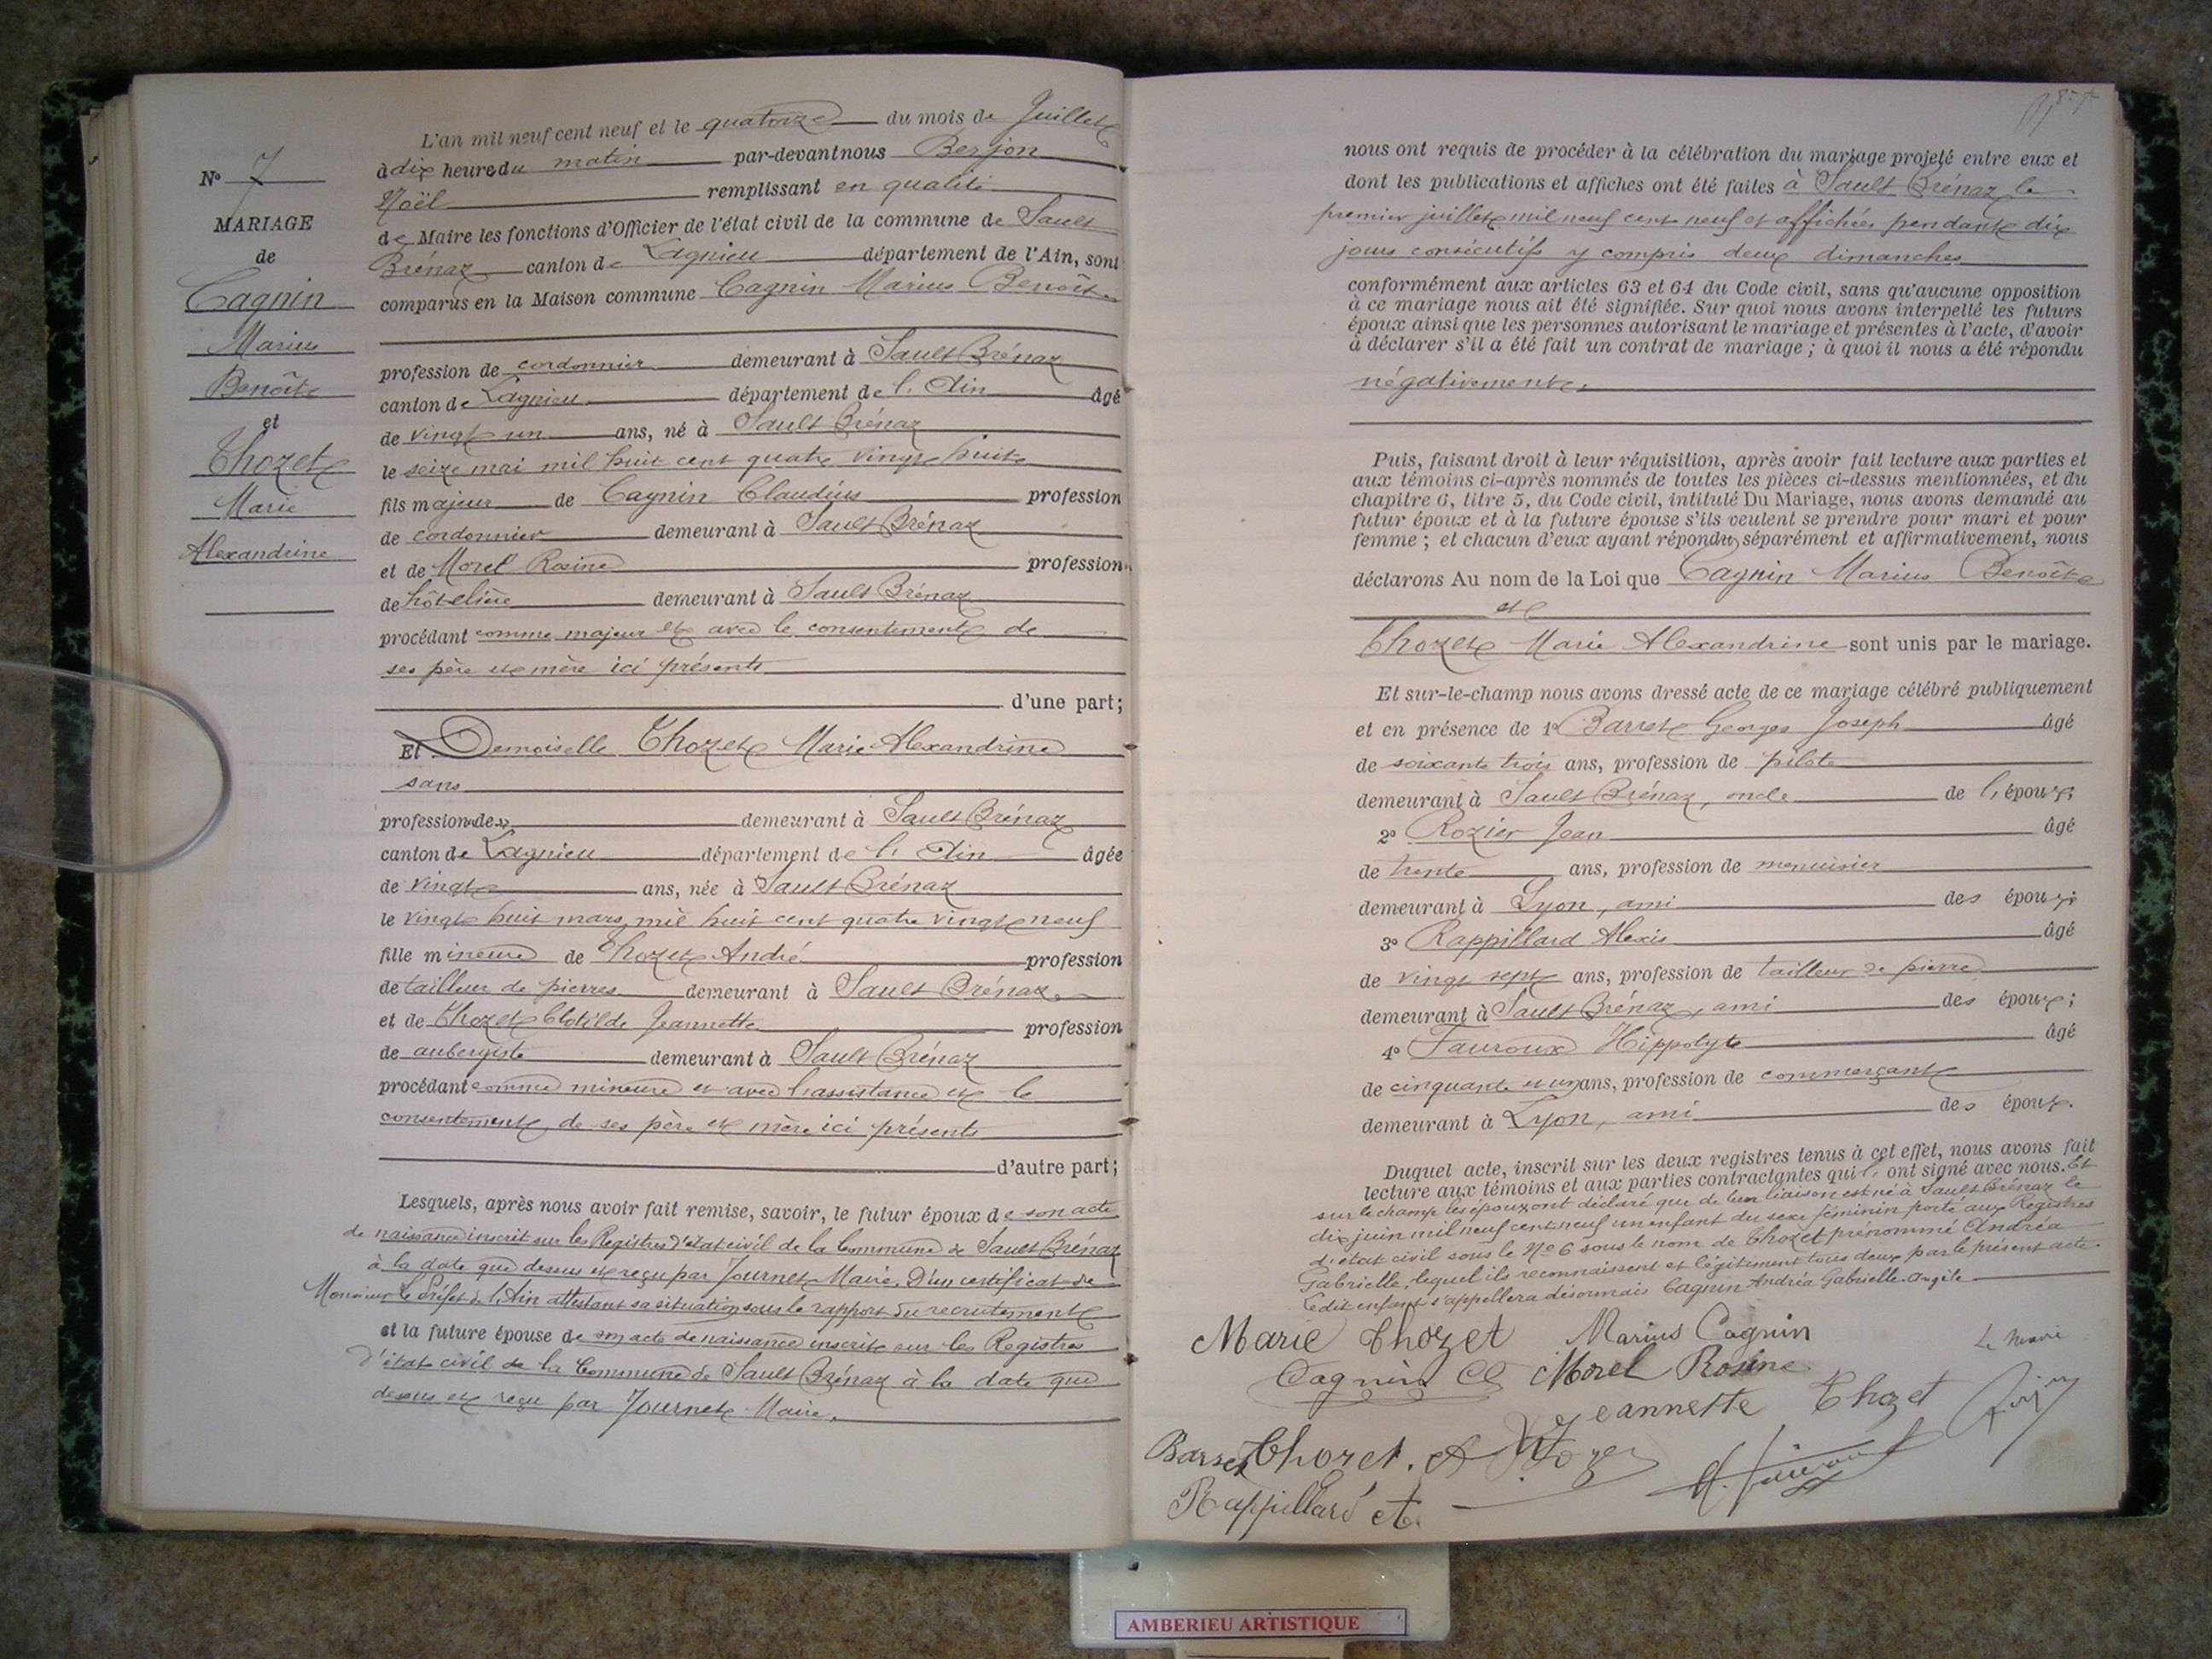 L'an mil neuf cent neuf et le quatorze du mois de Juillet
N° 7
à dix heure du matin par-devant nous Berjon
Noël remplissant en qualité
MARIAGE
de Maire les fonctions d'Officier de l'état civil de la commune de Sault
de
Brénaz canton de Lagnieu département de l'Ain, sont
Cagnin
comparus en la Maison commune Cagnin Marius Benoît
Marius
profession de cordonnier demeurant à Sault Brénaz
Benoît
canton de Lagnieu département de l'Ain âgé
et
de vingt un ans, né à Sault Brénaz
Thozet
le seize mai mil huit cent quatre vingt huit
Marie
fils majeur de Cagnin Claudius profession
de cordonnier demeurant à Sault Brénaz
Alexandrine
et de Morel Rosine profession
de hôtelière demeurant à Sault Brénaz
procédant comme majeur et avec le consentement de
ses père et mère ici présents
d'une part;
Et Demoiselle Thozet Marie Alexandrine
sans
profession de demeurant à Sault Brénaz
canton de Lagnieu département de l'Ain âgée
de vingt ans, née à Sault Brénaz
le vingt huit mars mil huit cent quatre vingt neuf
fille mineure de Thozet André profession
de tailleur de pierres demeurant à Sault Brénaz
et de Thozet Clotilde Jeannette profession
de aubergiste demeurant à Sault Brénaz
procédant comme mineure et avec l'assistance et le
consentement de ses père et mère ici présents
d'autre part;
Lesquels, après nous avoir fait remise, savoir, le futur époux de son acte
de naissance inscrit sur les Registres d'état civil de la Commune de Sault Brénaz
à la date que dessus et reçu par Journet Maire. D'un certificat de
Monsieur le Préfet de l'Ain attestant sa situation sous le rapport du recrutement
et la future épouse de son acte de naissance inscrit sur les Registres
d'état civil de la Commune de Sault Brénaz à la date que
dessus et reçu par Journet Maire.
nous ont requis de procéder à la célébration du mariage projeté entre eux et
dont les publications et affiches ont été faites à Sault Brénaz le
premier juillet mil neuf cent neuf et affichées pendant dix
jours consécutifs y compris deux dimanches
conformément aux articles 63 et 64 du Code civil, sans qu'aucune opposition
à ce mariage nous ait été signifiée. Sur quoi nous avons interpellé les futurs
époux ainsi que les personnes autorisant le mariage et présentes à l'acte, d'avoir
à déclarer s'il a été fait un contrat de mariage ; à quoi il nous a été répondu
négativement.
Puis, faisant droit à leur réquisition, après avoir fait lecture aux parties et
aux témoins ci-après nommés de toutes les pièces ci-dessus mentionnées, et du
chapitre 6, titre 5, du Code civil, intitulé Du Mariage, nous avons demandé au
futur époux et à la future épouse s'ils veulent se prendre pour mari et pour
femme ; et chacun d'eux ayant répondu séparément et affirmativement, nous
déclarons Au nom de la Loi que Cagnin Marius Benoît
et
Thozet Marie Alexandrine sont unis par le mariage.
Et sur-le-champ nous avons dressé acte de ce mariage célébré publiquement
et en présence de 1° Barret Georges Joseph âgé
de soixante trois ans, profession de pilote
demeurant à Sault Brénaz, oncle de l'époux;
2° Rozier Jean âgé
de trente ans, profession de menuisier
demeurant à Lyon, ami des époux;
3° Rappillard Alexis âgé
de vingt sept ans, profession de tailleur de pierre
demeurant à Sault Brénaz, ami des époux;
4° Fauroux Hippolyte âgé
de cinquante et un ans, profession de commerçant
demeurant à Lyon, ami des époux.
Duquel acte, inscrit sur les deux registres tenus à cet effet, nous avons fait
lecture aux témoins et aux parties contractantes qui l'ont signé avec nous. Et
sur le champ les époux ont déclaré que de leur liaison est né à Sault Brénaz le
dix juin mil neuf cent neuf un enfant du sexe féminin porté aux Registres
d'état civil sous le N° 6 sous le nom de Thozet prénommé Andréa
Gabrielle, lequel ils reconnaissent et légitiment tous deux par le présent acte.
Ledit enfant s'appellera désormais Cagnin Andréa Gabrielle
Marie Thozet Marius Cagnin
Le Maire
Cagnin Cl Morel Rosine
Jeannette Thozet
Barret Thozet. A
Rappillard A.
AMBERIEU ARTISTIQUE